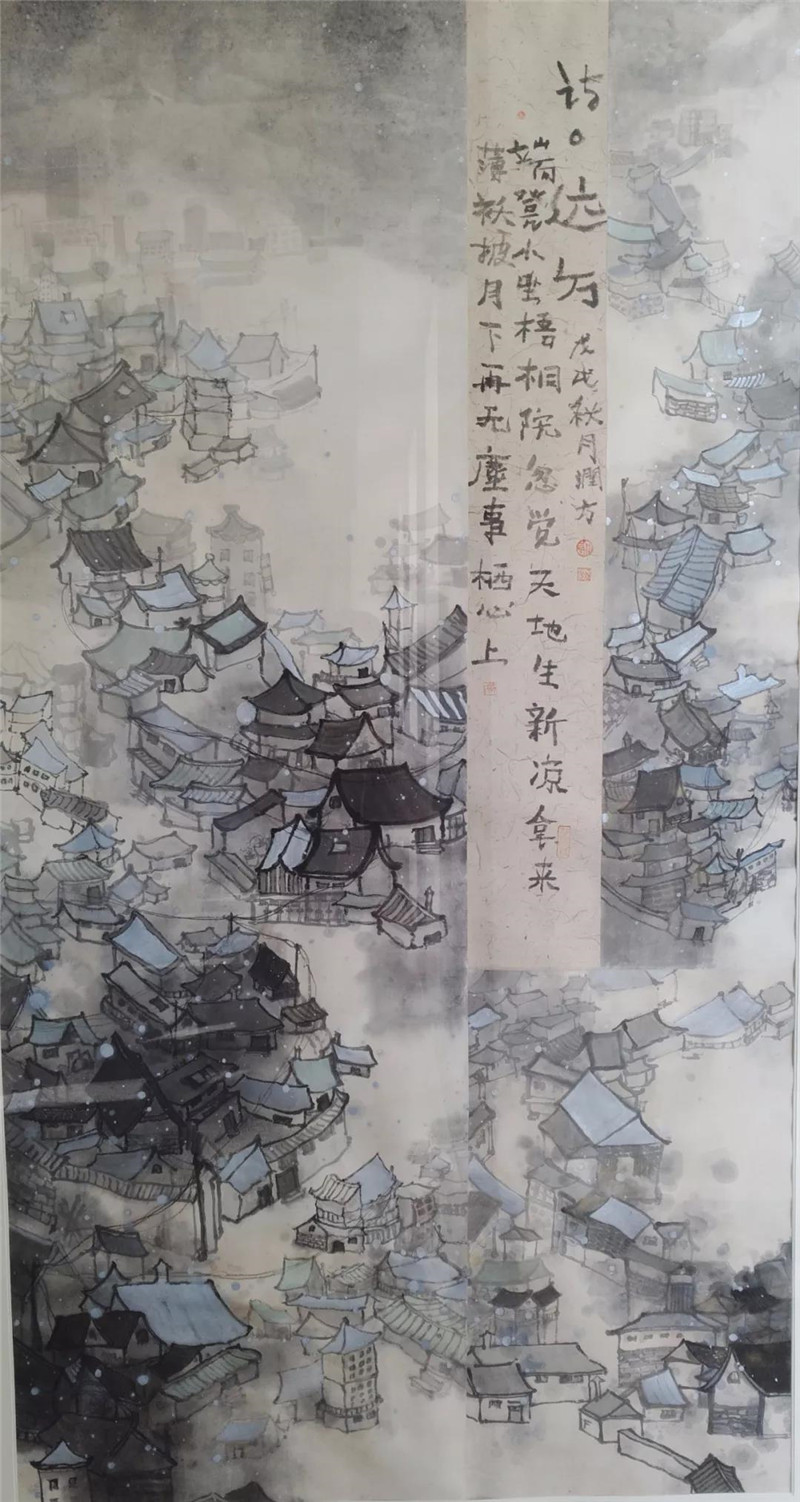 诗。远方
戊戌秋月润方
端凳小坐梧桐院忽觉天地生新凉拿来
薄袄披月下再无塵事栖心上